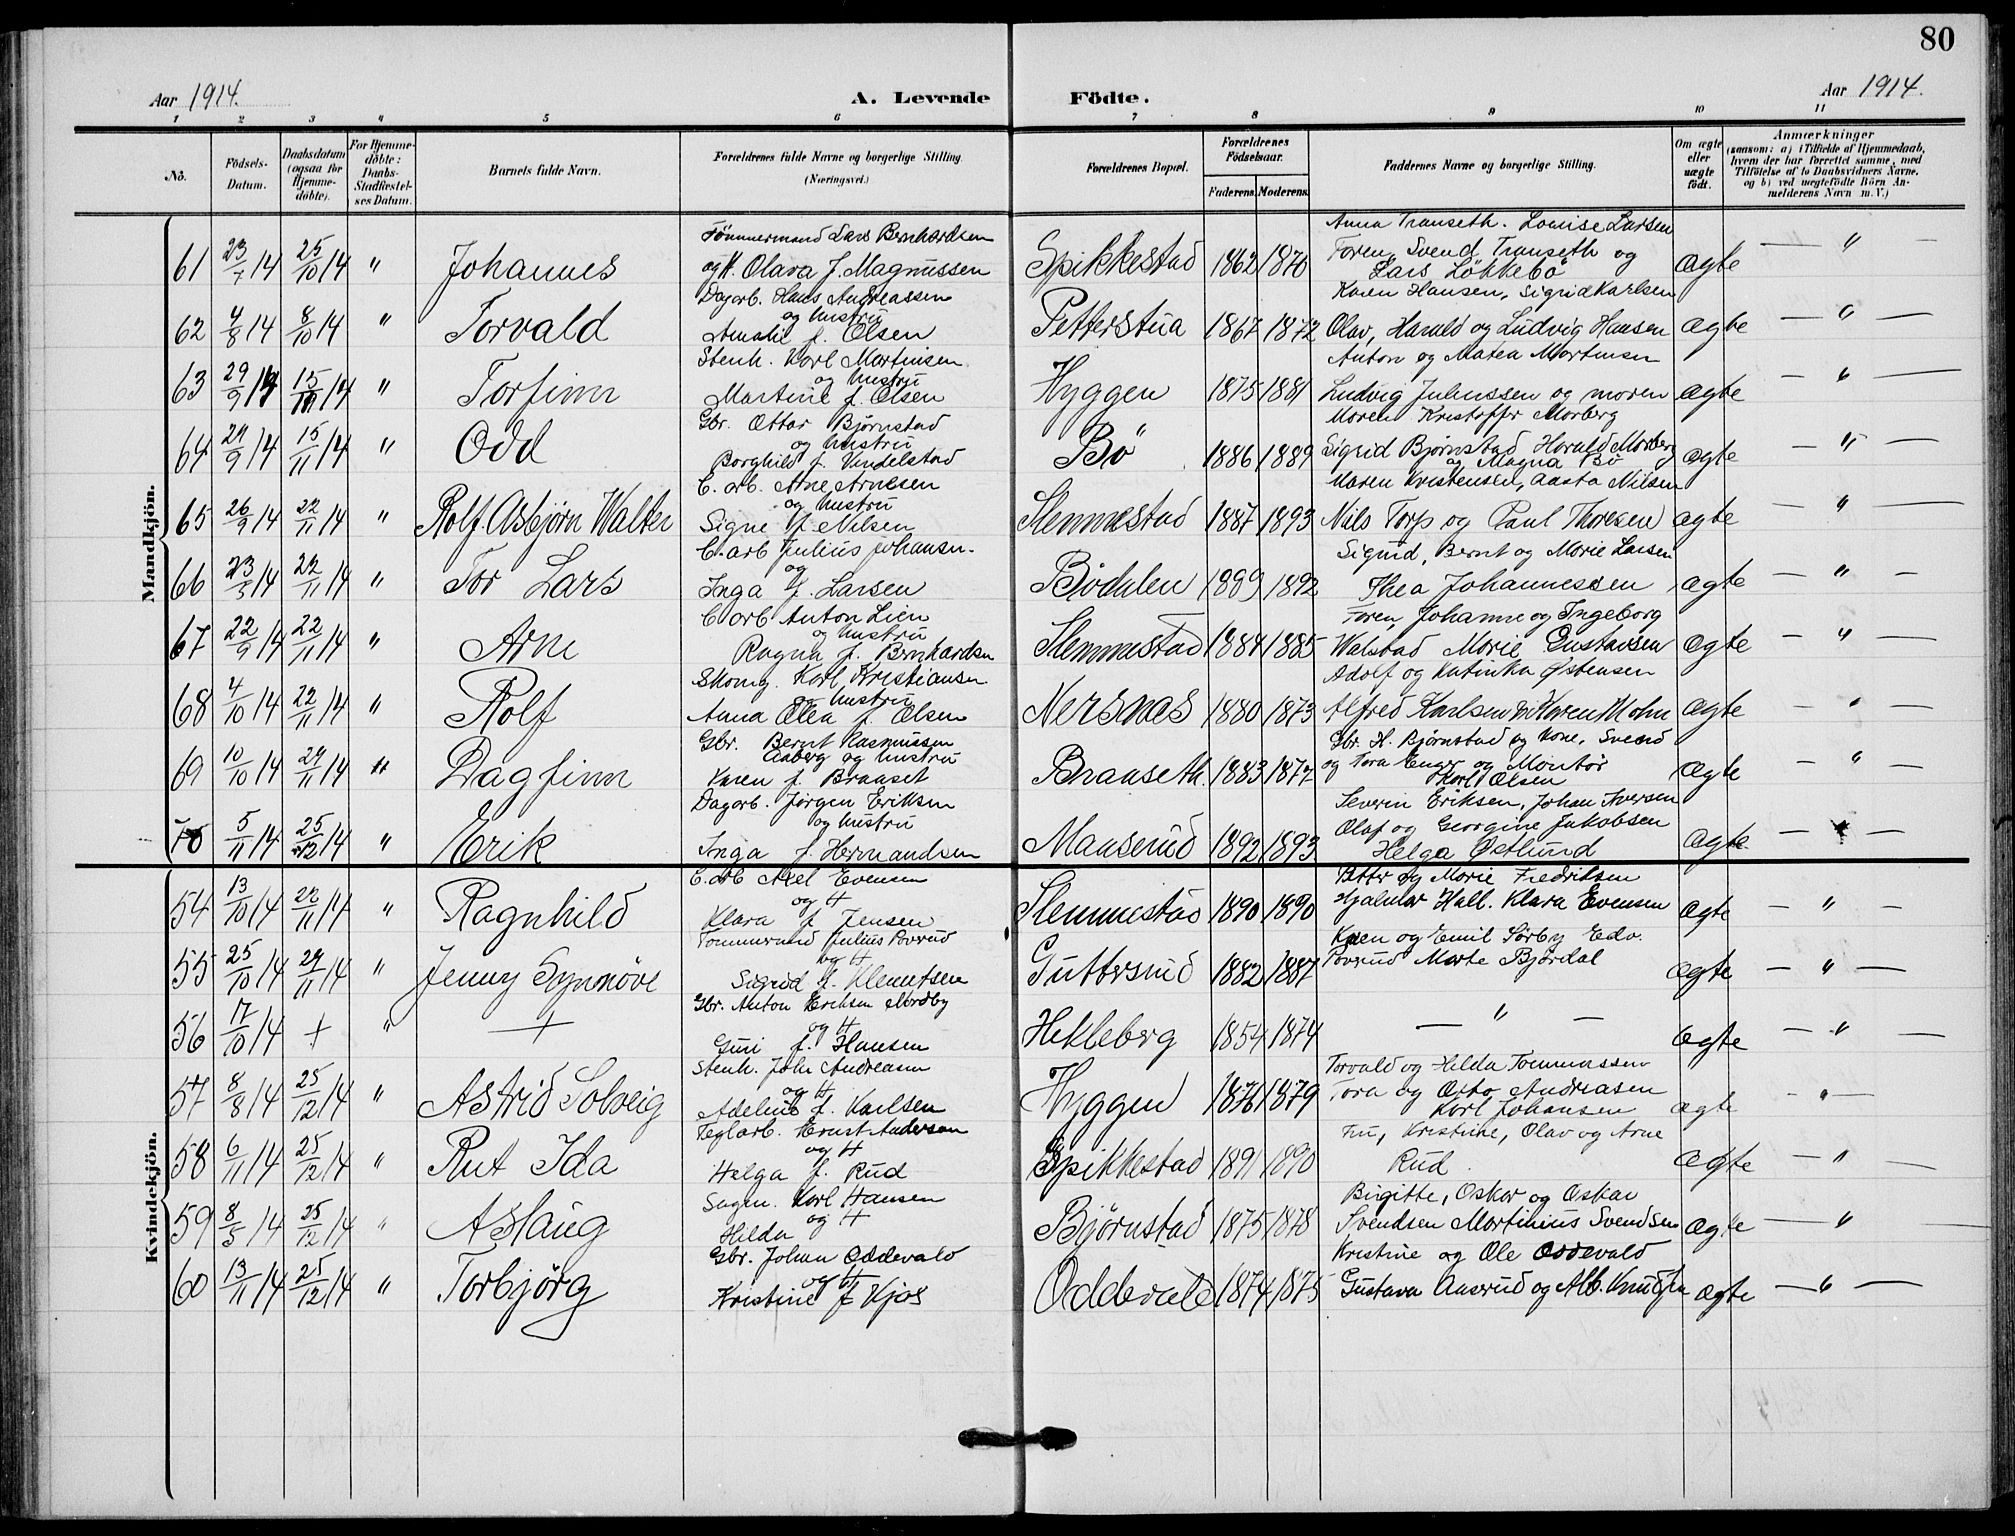 80
Aar 1914.
A. Levende Födte.
Aar 1914.
1 2 3 4 5 6 7 8 9 10 11
No.
Födsels-Datum.
Daabsdatum (ogsaa for Hjemme-döbte).
For Hjemme-döbte: Daabs-Stadfæstel-ses Datum.
Barnets fulde Navn.
Forældrenes fulde Navne og borgerlige Stilling.
(Næringsvei.)
Forældrenes Bopæl.
Forældrenes Födselsaar.
Faderens. Moderens.
Faddernes Navne og borgerlige Stilling.
Om ægte eller uægte födt.
Anmærkninger
(saasom: a) i Tilfælde af Hjemmedaab, hvem der har forrettet samme, med Tilföielse af to Daabsvidners Navne, og b) ved uegtefödte Börn An-melderens Navn m. V.)
Mandkjön.
61 23/7 14 25/10 14 " Johannes Tömmermand Lars Bernhardsen og H. Olava f. Magnussen Spikkestad 1862 1870 Anna Transeth. Lovise Larsen Faren, Svend Transeth og Lars Løkkebø ægte — " —
62 4/8 14 8/10 14 " Torvald Dagarb. Hans Andreassen og hustru Amalie f. Olsen Petterstua 1867 1872 Karen Hansen, Sigrid Karlsen Olav, Harald og Ludvig Hansen ægte — " —
63 29/9 14 15/11 14 " Torfinn Stenh. Karl Martinsen og hustru Martine f. Olsen Hyggen 1875 1881 Anton og Matea Martinsen Ludvig Juliussen og moren ægte — " —
64 29/9 14 15/11 14 " Odd Gbr. Ottar Bjørnstad og hustru Borghild f. Vindelstad Bö 1886 1889 Moren Kristoffer Morberg Sigrid Bjørnstad Harald Morberg og Magna Bø ægte — " —
65 26/9 14 22/11 14 " Rolf Asbjørn Walter C. arb. Arne Arnesen og hustru Signe f. Nilsen Slemmestad 1887 1893 Maren Kristensen, Aasta Nilsen Nils Torp og Paul Thoresen ægte — " —
66 23/5 14 22/11 14 " Tor Lars C. arb Julius Johansen. og Inga f. Larsen Bödalen 1889 1892 Sigrid, Bernt og Marie Larsen Thea Johannessen ægte — " —
67 22/9 14 22/11 14 " Arne C. arb Anton Lien og hustru Ragna f. Bernhardsen Slemmestad 1884 1885 Faren, Johanne og Ingeborg Walstad Marie Gustavsen ægte — " —
68 4/10 14 22/11 14 " Rolf Skomg. Karl Kristiansen og hustru Anna Olea f. Olsen Nersnes 1880 1873 Adolf og Katinka Østensen Alfred Karlsen og Karen Mohn ægte — " —
69 10/10 14 29/11 14 " Dagfinn Gbr. Bernt Rasmussen Aaberg og hustru Karen f. Branset Branseth. 1883 1877 Gbr. H. Bjørnstad og Kone, Svend og Tora Enger og Montør Karl Olsen ægte — " —
70 5/11 14 25/12 14 " Erik Dagarb. Jørgen Eriksen og hustru Inga f. Hermandsen Manserud 1892 1893 Severin Eriksen, Johan Iversen Olaf og Georgine Jakobsen Helga Østlund ægte —
Kvindekjön.
54 13/10 14 22/11 14 " Ragnhild C. arb Axel Evensen og H Klara f. Jensen Slemmestad 1890 1890 Petter og Marie Fredriksen Hjalmar Hall. Klara Evensen ægte — " —
55 25/10 14 29/11 14 " Jenny Synnöve Tömmermand Julius Povrud og H Sigrid f. Klemetsen Guttersrud 1882 1887 Karen og Emil Sørby Edv. Povrud Marte Bjørdal ægte — " —
56 17/10 14 + " + Gbr. Anton Eriksen Nordby og H Guri f. Hansen Hekleberg 1854 1874 — " — ægte — " —
57 8/8 14 25/12 14 " Astrid Solveig Stenh. Johs Andreassen og H Adeline f. Karlsen Hyggen 1876 1879 Torvald og Hilda Tommassen Tora og Otto Andreasen Karl Johansen ægte — " —
58 6/11 14 25/12 14 " Rut Ida Teglarb. Ernst Andersen og H Helga f. Rud Spikkestad 1891 1890 Kristine, Olav og Arne Rud. ægte — " —
59 8/5 14 25/12 14 " Aslaug Sagm. Karl Hansen og H Hilda Bjørnstad 1875 1878 Birgitte, Oskar og Oskar Svendsen Martinius Svendsen ægte — "
60 13/11 14 25/12 14 " Torbjörg Gbr. Johan Oddevald og H Kristine f Kjos Oddevald 1874 1875 Kristine og Ole Oddevald Gustava Aaserud og Alb. Knudsen ægte — " —